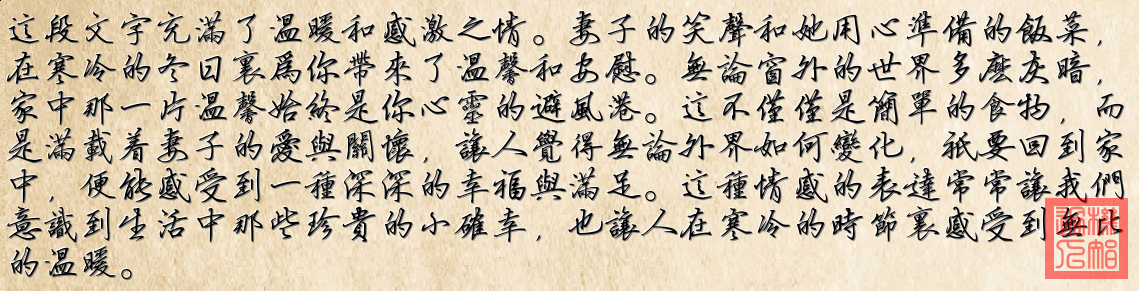 這段文字充滿了溫暖和感激之情。妻子的笑聲和她用心準備的飯菜，
在寒冷的冬日裏爲你帶來了溫馨和安慰。無論窗外的世界多麽灰暗，
家中那一片溫馨始終是你心靈的避風港。這不僅僅是簡單的食物，而
是滿載着妻子的愛與關懷，讓人覺得無論外界如何變化，祇要回到家
中，便能感受到一種深深的幸福與滿足。這種情感的表達常常讓我們
意識到生活中那些珍貴的小確幸，也讓人在寒冷的時節裏感受到無比
的溫暖。